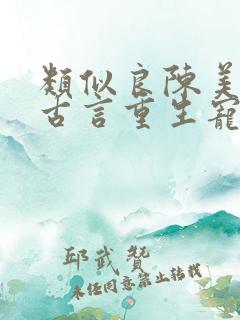 類似良陳美
古言重生寵
邱武贊
未經同意禁止轉載